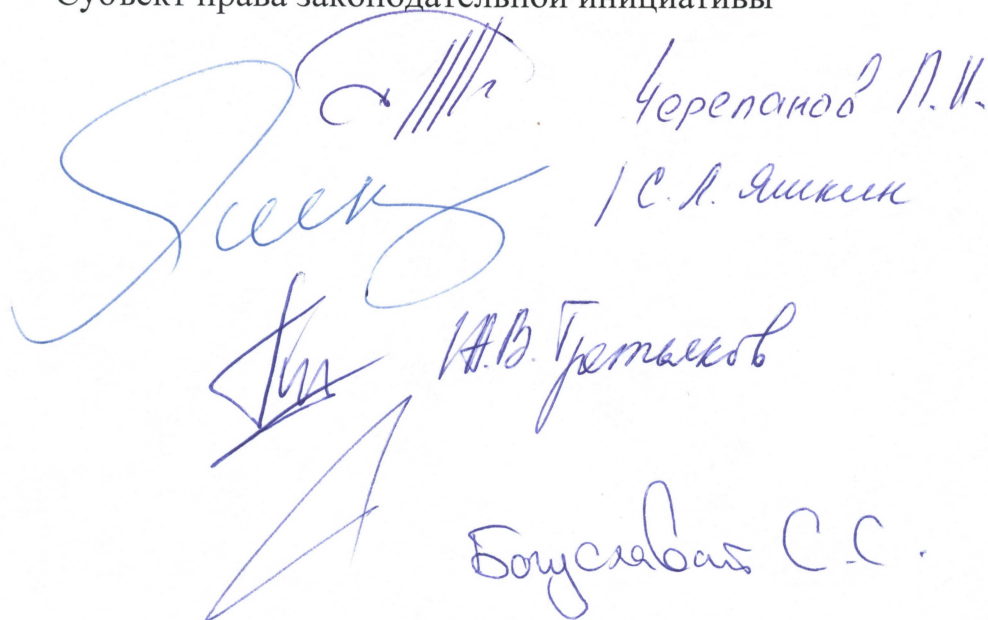 Субъект права законодательной инициативы
Черепанов П.И.
/ С.Л. Яшкин
Третьяков
С.С.